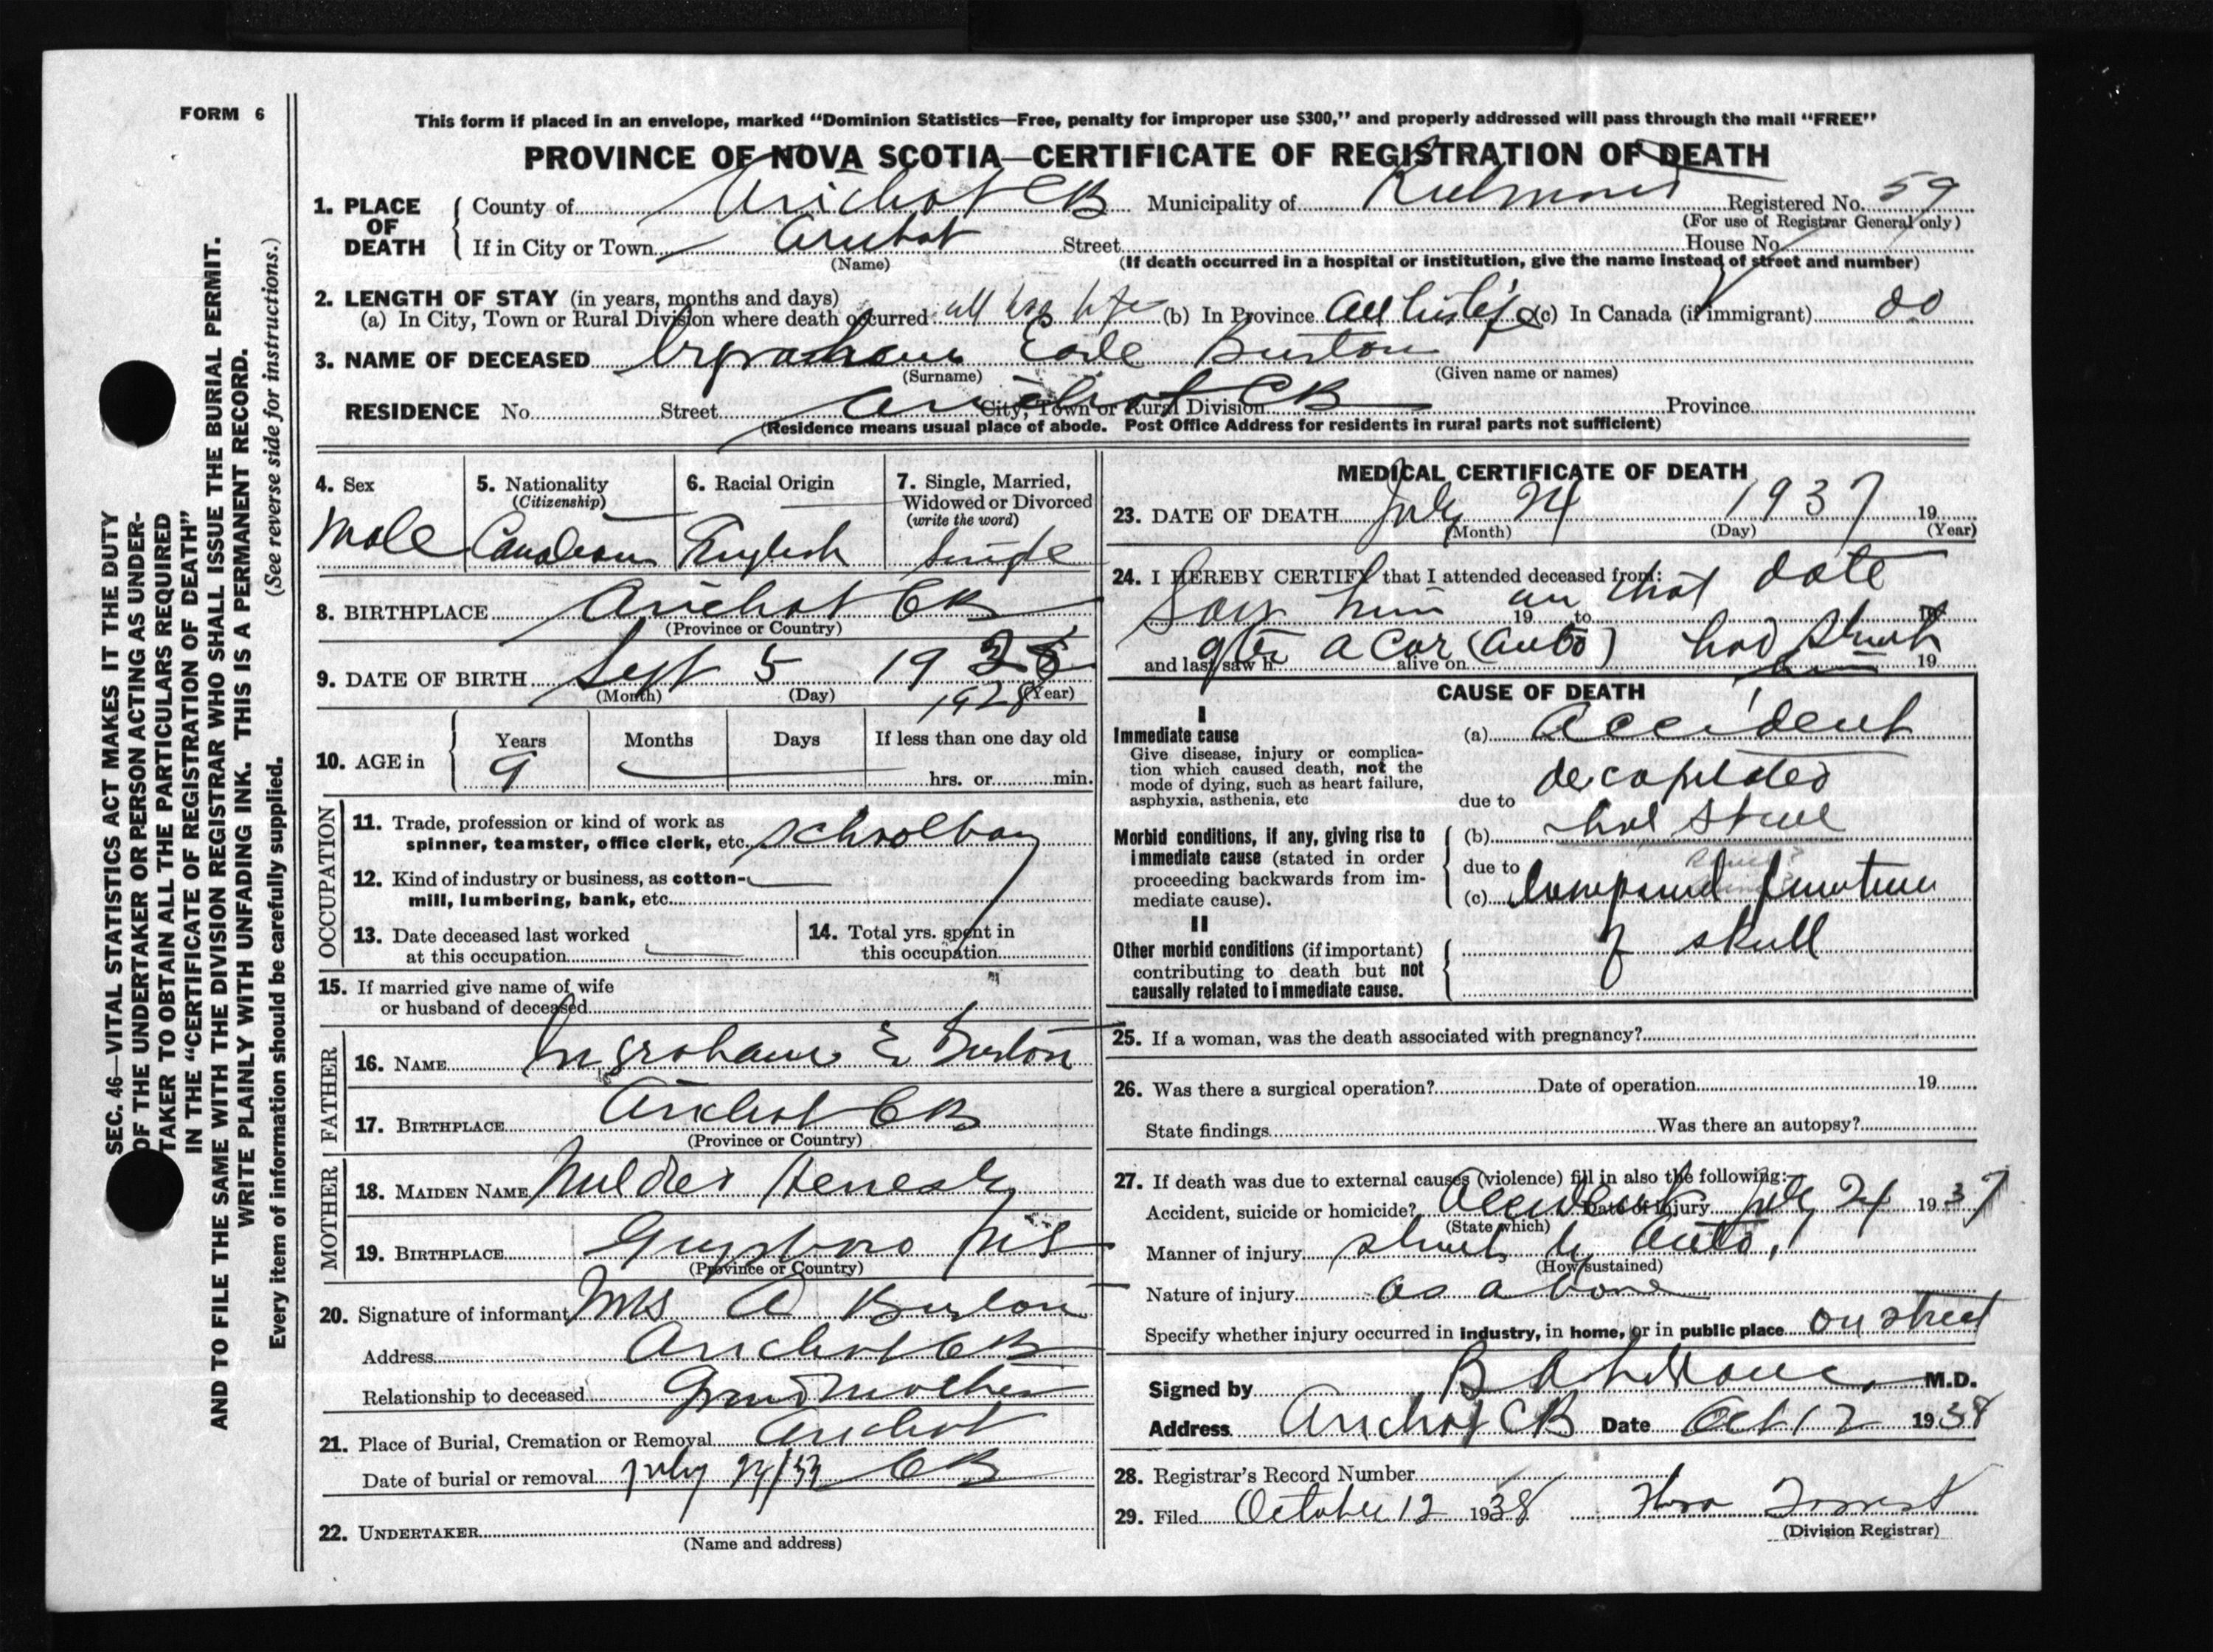 FORM 6
This form if placed in an envelope, marked “Dominion Statistics—Free, penalty for improper use $300,” and properly addressed will pass through the mail “FREE”
PROVINCE OF NOVA SCOTIA—CERTIFICATE OF REGISTRATION OF DEATH
1. PLACE OF DEATH County of Arichat CB Municipality of Richmond Registered No. 59
(For use of Registrar General only)
If in City or Town Arichat Street House No.
(Name) (If death occurred in a hospital or institution, give the name instead of street and number)
2. LENGTH OF STAY (in years, months and days)
(a) In City, Town or Rural Division where death occurred all his life (b) In Province All his life (c) In Canada (if immigrant) 00
3. NAME OF DECEASED Earle Burton
(Surname) (Given name or names)
RESIDENCE No. Street Arichat CB City, Town or Rural Division Province
(Residence means usual place of abode. Post Office Address for residents in rural parts not sufficient)
4. Sex Male
5. Nationality (Citizenship) Canadian
6. Racial Origin English
7. Single, Married, Widowed or Divorced (write the word) Single
8. BIRTHPLACE Arichat CB
(Province or Country)
9. DATE OF BIRTH Sept 5 1928
(Month) (Day) (Year)
10. AGE in Years 9 Months Days If less than one day old hrs. or min.
OCCUPATION
11. Trade, profession or kind of work as spinner, teamster, office clerk, etc. schoolboy
12. Kind of industry or business, as cotton-mill, lumbering, bank, etc.
13. Date deceased last worked at this occupation
14. Total yrs. spent in this occupation
15. If married give name of wife or husband of deceased
FATHER
16. NAME Ingraham E Burton
17. BIRTHPLACE Arichat CB
(Province or Country)
MOTHER
18. MAIDEN NAME
19. BIRTHPLACE Guysboro NS
(Province or Country)
20. Signature of informant Mrs A Burton
Address Arichat CB
Relationship to deceased Grandmother
21. Place of Burial, Cremation or Removal Arichat
Date of burial or removal July CB
22. UNDERTAKER
(Name and address)
MEDICAL CERTIFICATE OF DEATH
23. DATE OF DEATH July 24 1937 19
(Month) (Day) (Year)
24. I HEREBY CERTIFY that I attended deceased from:
Saw him on that date 19 to 19
after a car (auto) had struck him
and last saw h alive on 19
CAUSE OF DEATH
I
Immediate cause
Give disease, injury or complication which caused death, not the mode of dying, such as heart failure, asphyxia, asthenia, etc
(a) Accident
decapitated
due to
Morbid conditions, if any, giving rise to immediate cause (stated in order proceeding backwards from immediate cause).
(b)
due to
(c) Compound fracture
of skull
II
Other morbid conditions (if important) contributing to death but not causally related to immediate cause.
25. If a woman, was the death associated with pregnancy?
26. Was there a surgical operation? Date of operation 19
State findings Was there an autopsy?
27. If death was due to external causes (violence) fill in also the following:
Accident, suicide or homicide? Accident Date of injury July 24 1937
(State which)
Manner of injury struck by Auto.
(How sustained)
Nature of injury as above
Specify whether injury occurred in industry, in home, or in public place on street
Signed by M.D.
Address Arichat CB Date Oct 12 1938
28. Registrar's Record Number
29. Filed October 12 1938
(Division Registrar)
SEC. 46—VITAL STATISTICS ACT MAKES IT THE DUTY
OF THE UNDERTAKER OR PERSON ACTING AS UNDER-
TAKER TO OBTAIN ALL THE PARTICULARS REQUIRED
IN THE “CERTIFICATE OF REGISTRATION OF DEATH”
AND TO FILE THE SAME WITH THE DIVISION REGISTRAR WHO SHALL ISSUE THE BURIAL PERMIT.
WRITE PLAINLY WITH UNFADING INK. THIS IS A PERMANENT RECORD.
(See reverse side for instructions.)
Every item of information should be carefully supplied.